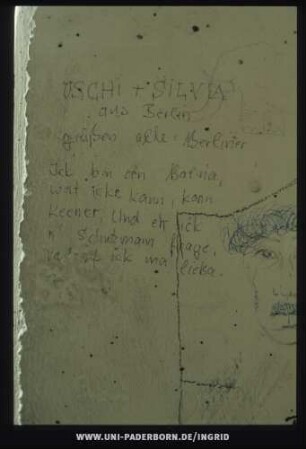 USCHI + SILVIA
aus Berlin
grüßen alle Berliner
Ick bin een Balina,
wat icke kann, kann
keener, Und eh ick
'n Schutzmann frage,
ick ma lieba.
WWW.UNI-PADERBORN.DE/INGRID